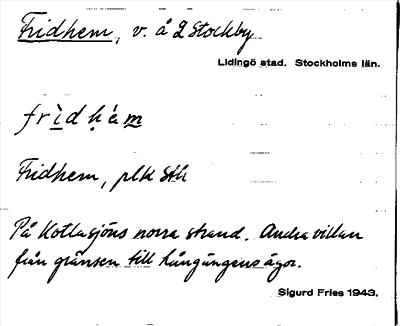 Fridhem, v. å 2 Stockby
Lidingö stad. Stockholms län.
frìdḥ́am
Fridhem, plk Sth
På Kottlasjöns norra strand. Andra villan
från gränsen till Långängens ägor.
Sigurd Fries 1943.